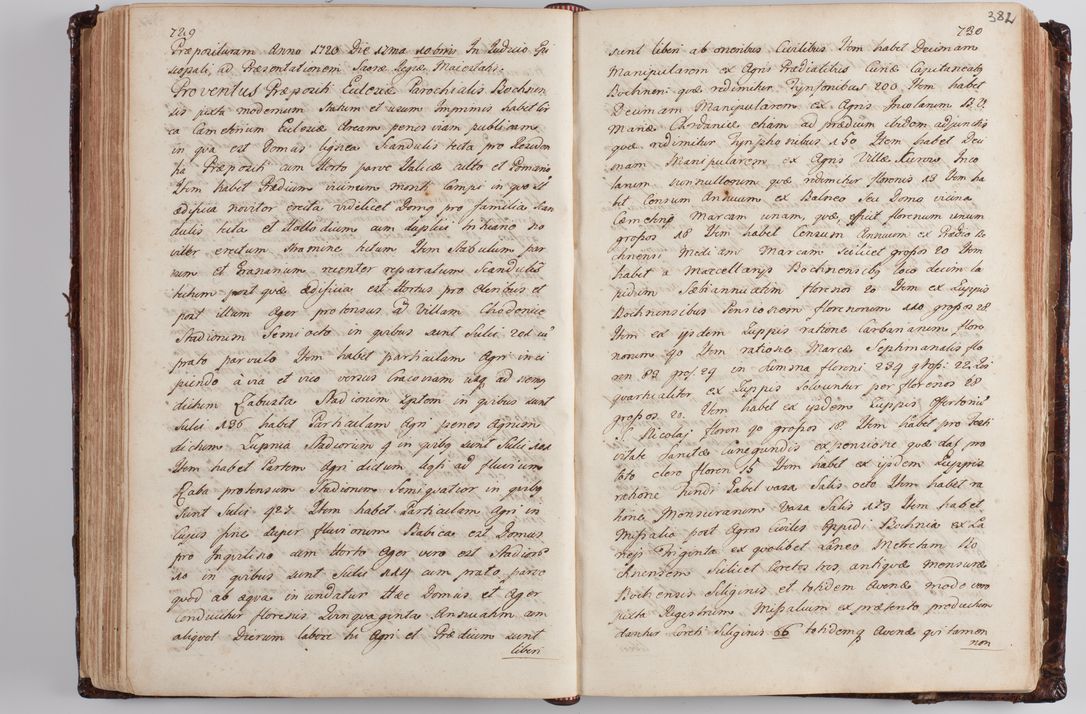 729
Præposituram Anno 1720 Die 17ma 10bris In Iudicio Epi
scopali, ad Præsentationem Sacræ Regiæ Maiestatis.
Proventus Præpositi Ecclesiæ Parochialis Bochnen
sis juxta modernum Statum et usum Imprimis habet cir
ca Cæmeterium Ecclesiæ Aream penes viam publicam
in qua est Domus lignea Scandulis tecta pro Residen
tia Præpositi cum Horto parvo Italico culto et Pomario
Item habet Prædium vicinum monti Campi in quo st
ædificia noviter erecta videlicet Domq pro familia Scan
dulis tecta et Horreum cum duplici
viter erectum Stramine tectum Item Stabulum par
vum et Granarium recenter reparatum Scandulis
tectum post quæ ædificia est Hortus pro oleribus et
post illum Ager protensus ad Villam Chodenice
Stadiorum Semi octo in quibus sunt Sulci 221 cu
prato parvulo Item habet particulam Agri inci
piendo à via et vico versus Cracoviam usq ad
dictum Łabuzta Stadiorum Septem in quibus sunt
Sulci 136 habet Particulam Agri penes Agrum
dictum Zupnia Stadiorum 9 in quibq sunt Sulci
Item habet Partem Agri dictum Ługi ad fluvium
Raba protensum Stadiorum Semiquatior in quibq
Sunt Sulci 927. Item habet Particulam Agri in
cujus fine super fluviorum Babicæ est Domus
pro Inquilino cum Horto Ager vero est Stadiorū
10 in quibus sunt Sulci 114 cum prato parvo
quod ab aqua inundatur Hæc Domus et Ager
conducitur florenis Quinquaginta Annuatim cum
aliquot Dierum labore hi Agri et Prædium sunt
liberi
730
382
sunt liberi ab oneribus Civilibus Item habet Decimam
Manipularem ex Agris Prædialibus Curiæ Capitanealis
Bochnensi quæ redimitur Tynfonibus 200 Item habet
Decimam Manipularem ex Agris Incolarum B. V.
Mariæ Chodenice etiam ad prædium ibidem adjunctis
quæ redimitur Tynphonibus 150 Item habet Deci
mam Manipularem ex Agris Villæ Kurow Inco
larum nonnullorum quæ redimitur florenis 13 Item ha
bet Censum Annuum ex Balneo seu Domo vicina
Cæmeterio Marcam unam, quæ efficit florenum unum
grossos 18 Item habet Censum Annuum ex Prædio Bo
chnensi Mediam Marcam Scilicet grossos 20 Item
habet a Marcellarijs Bochnensibq loco decim la
pidum Sebi annuatim florenos 20 Item ex Zuppis
Bochnensibus Pensionem florenorum 110 grossos 28
Item ex ijsdem Zuppis ratione Carbanarum flore
norum 90 Item ratione Marcæ Septimanalis flo
ren 82 gros. 29 in summa floreni 234 gross: 22
quartualiter ex Zuppis Solvuntur per florenos 28
grossos 20. Item habet ex ijsdem Zuppis offertorii
S. Nicolaj floren 90 grossos 18 Item habet pro Festi
vitate Sanctæ Cunegundis expensione quæ daf pro
toto clero floren 55 Item habet ex ijsdem Zuppis
ratione Fundi Zabel vasa Salis octo Item habet ra
tione Mensuranum Vasa Salis 123 Item habet
Missalia post Agros Civiles Oppidi Bochnia ex La
neis Triginta ex quolibet Laneo Metretam Bo
chnensem Scilicet Coretos tres antiquæ mensuræ
Bochnensis Siliginis et totidem Avenæ modo vero
juxta Registrum Missalium ex prætento productum
dantur Coreti Siliginis 66 totidemq Avenæ qui tamen
non